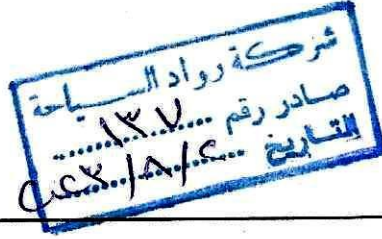 شركة رواد السياحة
صادر رقم ١٣٧
التاريخ ٢٠٢٣/٨/٢